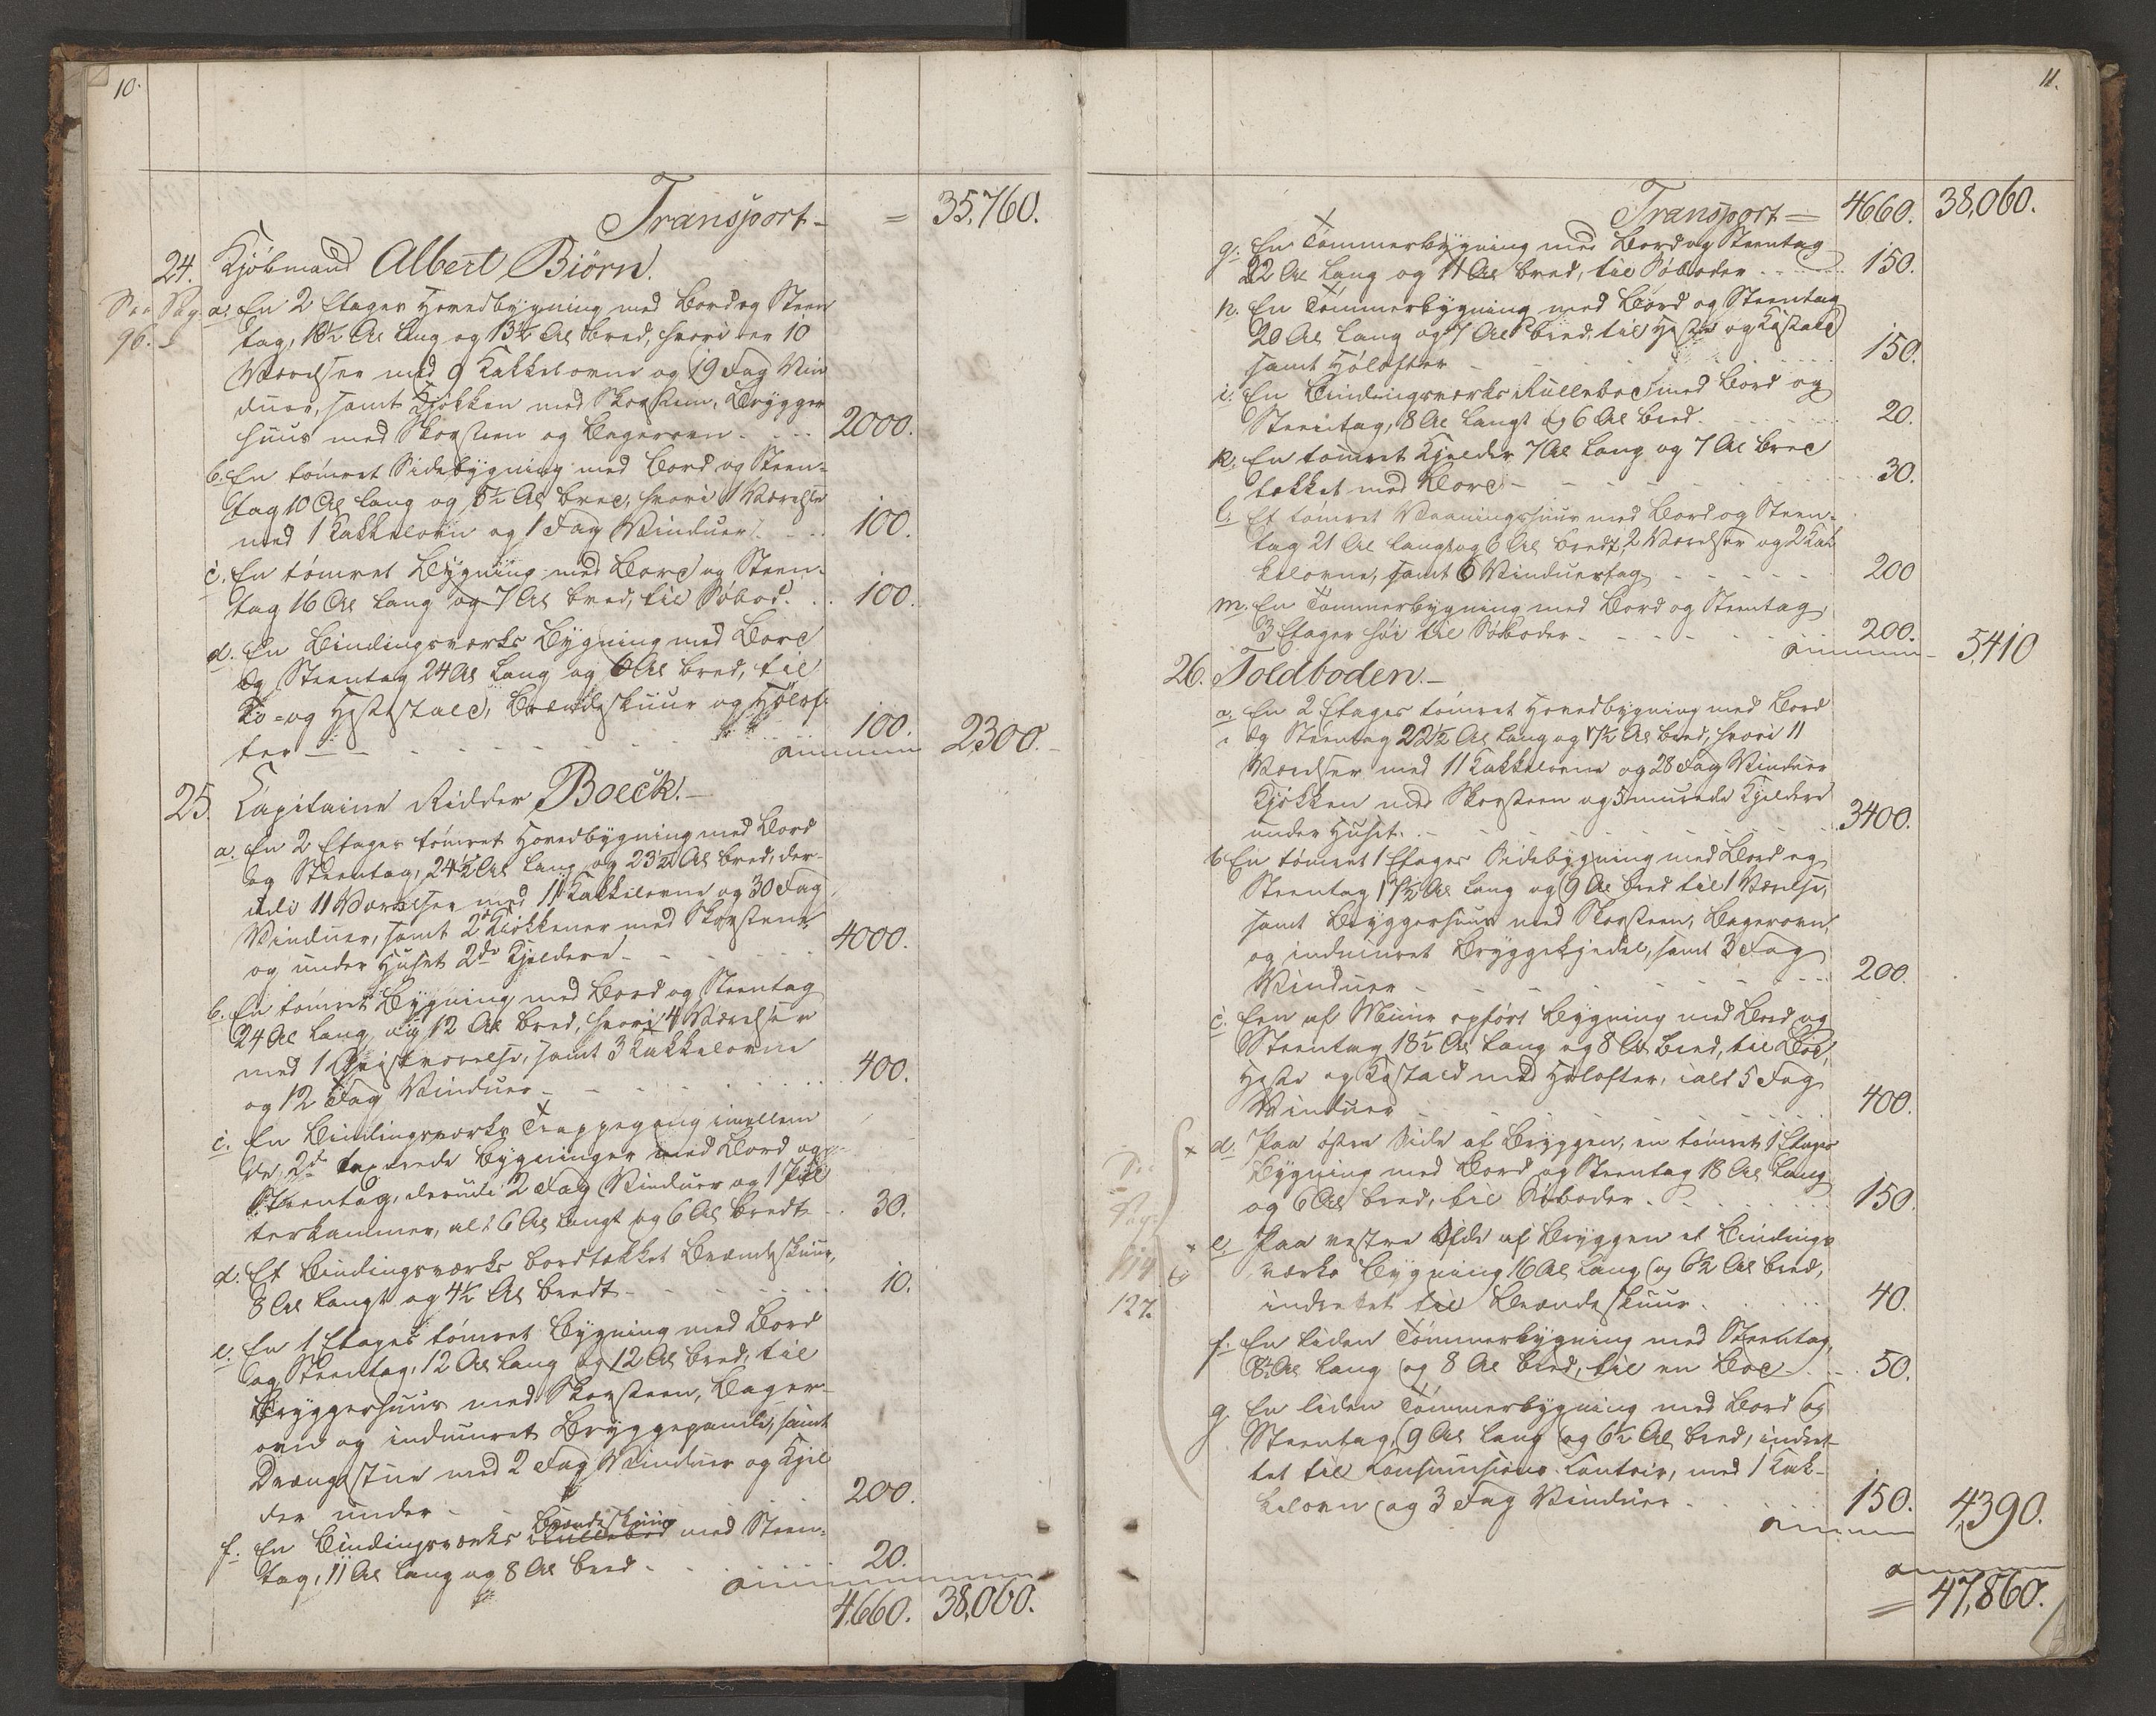 10.
Transport = 35,760.
24. Kjöbmand Albert Biörn.
See Pag.
96.
a. En 2 Etages Hovedbygning med Bord og Steen
tag, 18½ Al lang og 13½ Al bred, hvori ere 10
Værelser med 9 Kakkelovne og 19 Fag Vin
duer, samt Kjökken med Skorsteen, Brygger
huus med Skorsteen og Bagerovn. 2000.
b. En tömret Sidebygning med Bord og Steen-
tag 10 Al lang og 5½ Al bred, hvori 1 Værelse
med 1 Kakkelovn og 1 Fag Vinduer. 100.
c. En tömret Bygning med Bord og Steen-
tag 16 Al lang og 7 Al bred, til Söbod. 100.
d. En Bindingsværks Bygning med Bord
og Steentag 24 Al lang og 6 Al bred, til
Ko- og Hestestald, Brændeskuur og Hölof-
ter 100. 2300.
25. Capitaine Ridder Boeck.
a. En 2 Etages tömret Hovedbygning med Bord
og Steentag, 24½ Al lang og 23½ Al bred, der-
udi 11 Værelser med 11 Kakkelovne og 30 Fag
Vinduer, samt 2de Kiökkener med Skorstene
og under Huset 2de Kjeldere 4000.
b. En tömret Bygning med Bord og Steentag
24 Al lang og 12 Al bred, hvori 4 Værelser
med 1 Qvistværelse, samt 3 Kakkelovne
og 12 Fag Vinduer 400.
c. En Bindingsværks Trappegang imellem
de 2de taxerede Bygninger med Bord og
Steentag, derudi 2 Fag Vinduer og 1 Pul
terkammer, alt 6 Al langt og 6 Al bredt 30.
d. Et Bindingsværks bordtækket Brændeskuur,
8 Al langt og 4½ Al bredt 10.
e. En 1 Etages tömret Bygning med Bord
og Steentag, 12 Al lang og 12 Al bred, til
Bryggerhuus med Skorsteen, Bager-
ovn og indmuret Bryggepande, samt
Drængestue med 2 Fag Vinduer og Kjel
der under 200.
f. En Bindingsværks Brændeskuur med Steen-
tag, 11 Al lang og 8 Al bred 20.
4660. 38,060.
11.
Transport = 4660. 38,060.
g. En Tömmerbygning med Bord og Steentag
22 Al lang og 11 Al bred, til Söboder 150.
h. En Tömmerbygning med Bord og Steentag
20 Al lang og 7 Al bred, til Heste og Kostald
samt Hölofter 150.
i. En Bindingsværks Rullebod med Bord og
Steentag, 8 Al langt og 6 Al bred 20.
k. En tömret Kjelder 7 Al lang og 7 Al bred
tækket med Bord 30.
l. Et tömret Vaaningshuus med Bord og Steen-
tag 21 Al langt og 6 Al bredt, 2 Værelser og 2 Kak
kelovne, samt 6 Vinduersfag 200
m. En Tömmerbygning med Bord og Steentag,
3 Etager höi til Söboder 200. 5,410
26. Toldboden.
a. En 2 Etages tömret Hovedbygning med Bord
og Steentag 22½ Al lang og 17½ Al bred, hvori 11
Værelser med 11 Kakkelovne og 28 Fag Vinduer
Kjökken med Skorsteen og 5 murede Kjeldere
under Huset. 3400.
b En tömret 1 Etages Sidebygning med Bord og
Steentag 17½ Al lang og 9 Al bred til 1 Værelse,
samt Bryggerhuus med Skorsteen, Bagerovn,
og indmuret Bryggekjedel, samt 3 Fag
Vinduer 200.
c. Een af Muur opfört Bygning med Bord og
Steentag 18½ Al lang og 8 Al bred, til Bod,
Heste og Kostald med Hölofter, ialt 5 Fag
Vinduer 400.
See
Pag:
114
&
127.
d. Paa östre Side af Bryggen, en tömret 1 Etages
Bygning med Bord og Steentag 18 Al lang
og 6 Al bred, til Söboder 150.
e. Paa vestre Side af Bryggen et Bindings
værks Bygning 16 Al lang og 6½ Al bred,
indrettet til Brændeskuur 40.
f. En liden Tömmerbygning med Steentag,
8½ Al lang og 8 Al bred, til en Bod 50.
g En liden Tömmerbygning med Bord og
Steentag, 9 Al lang og 6½ Al bred, indret-
tet til Consumtions Contoir, med 1 Kak-
kelovn og 3 Fag Vinduer 150. 4,390.
= 47,860.